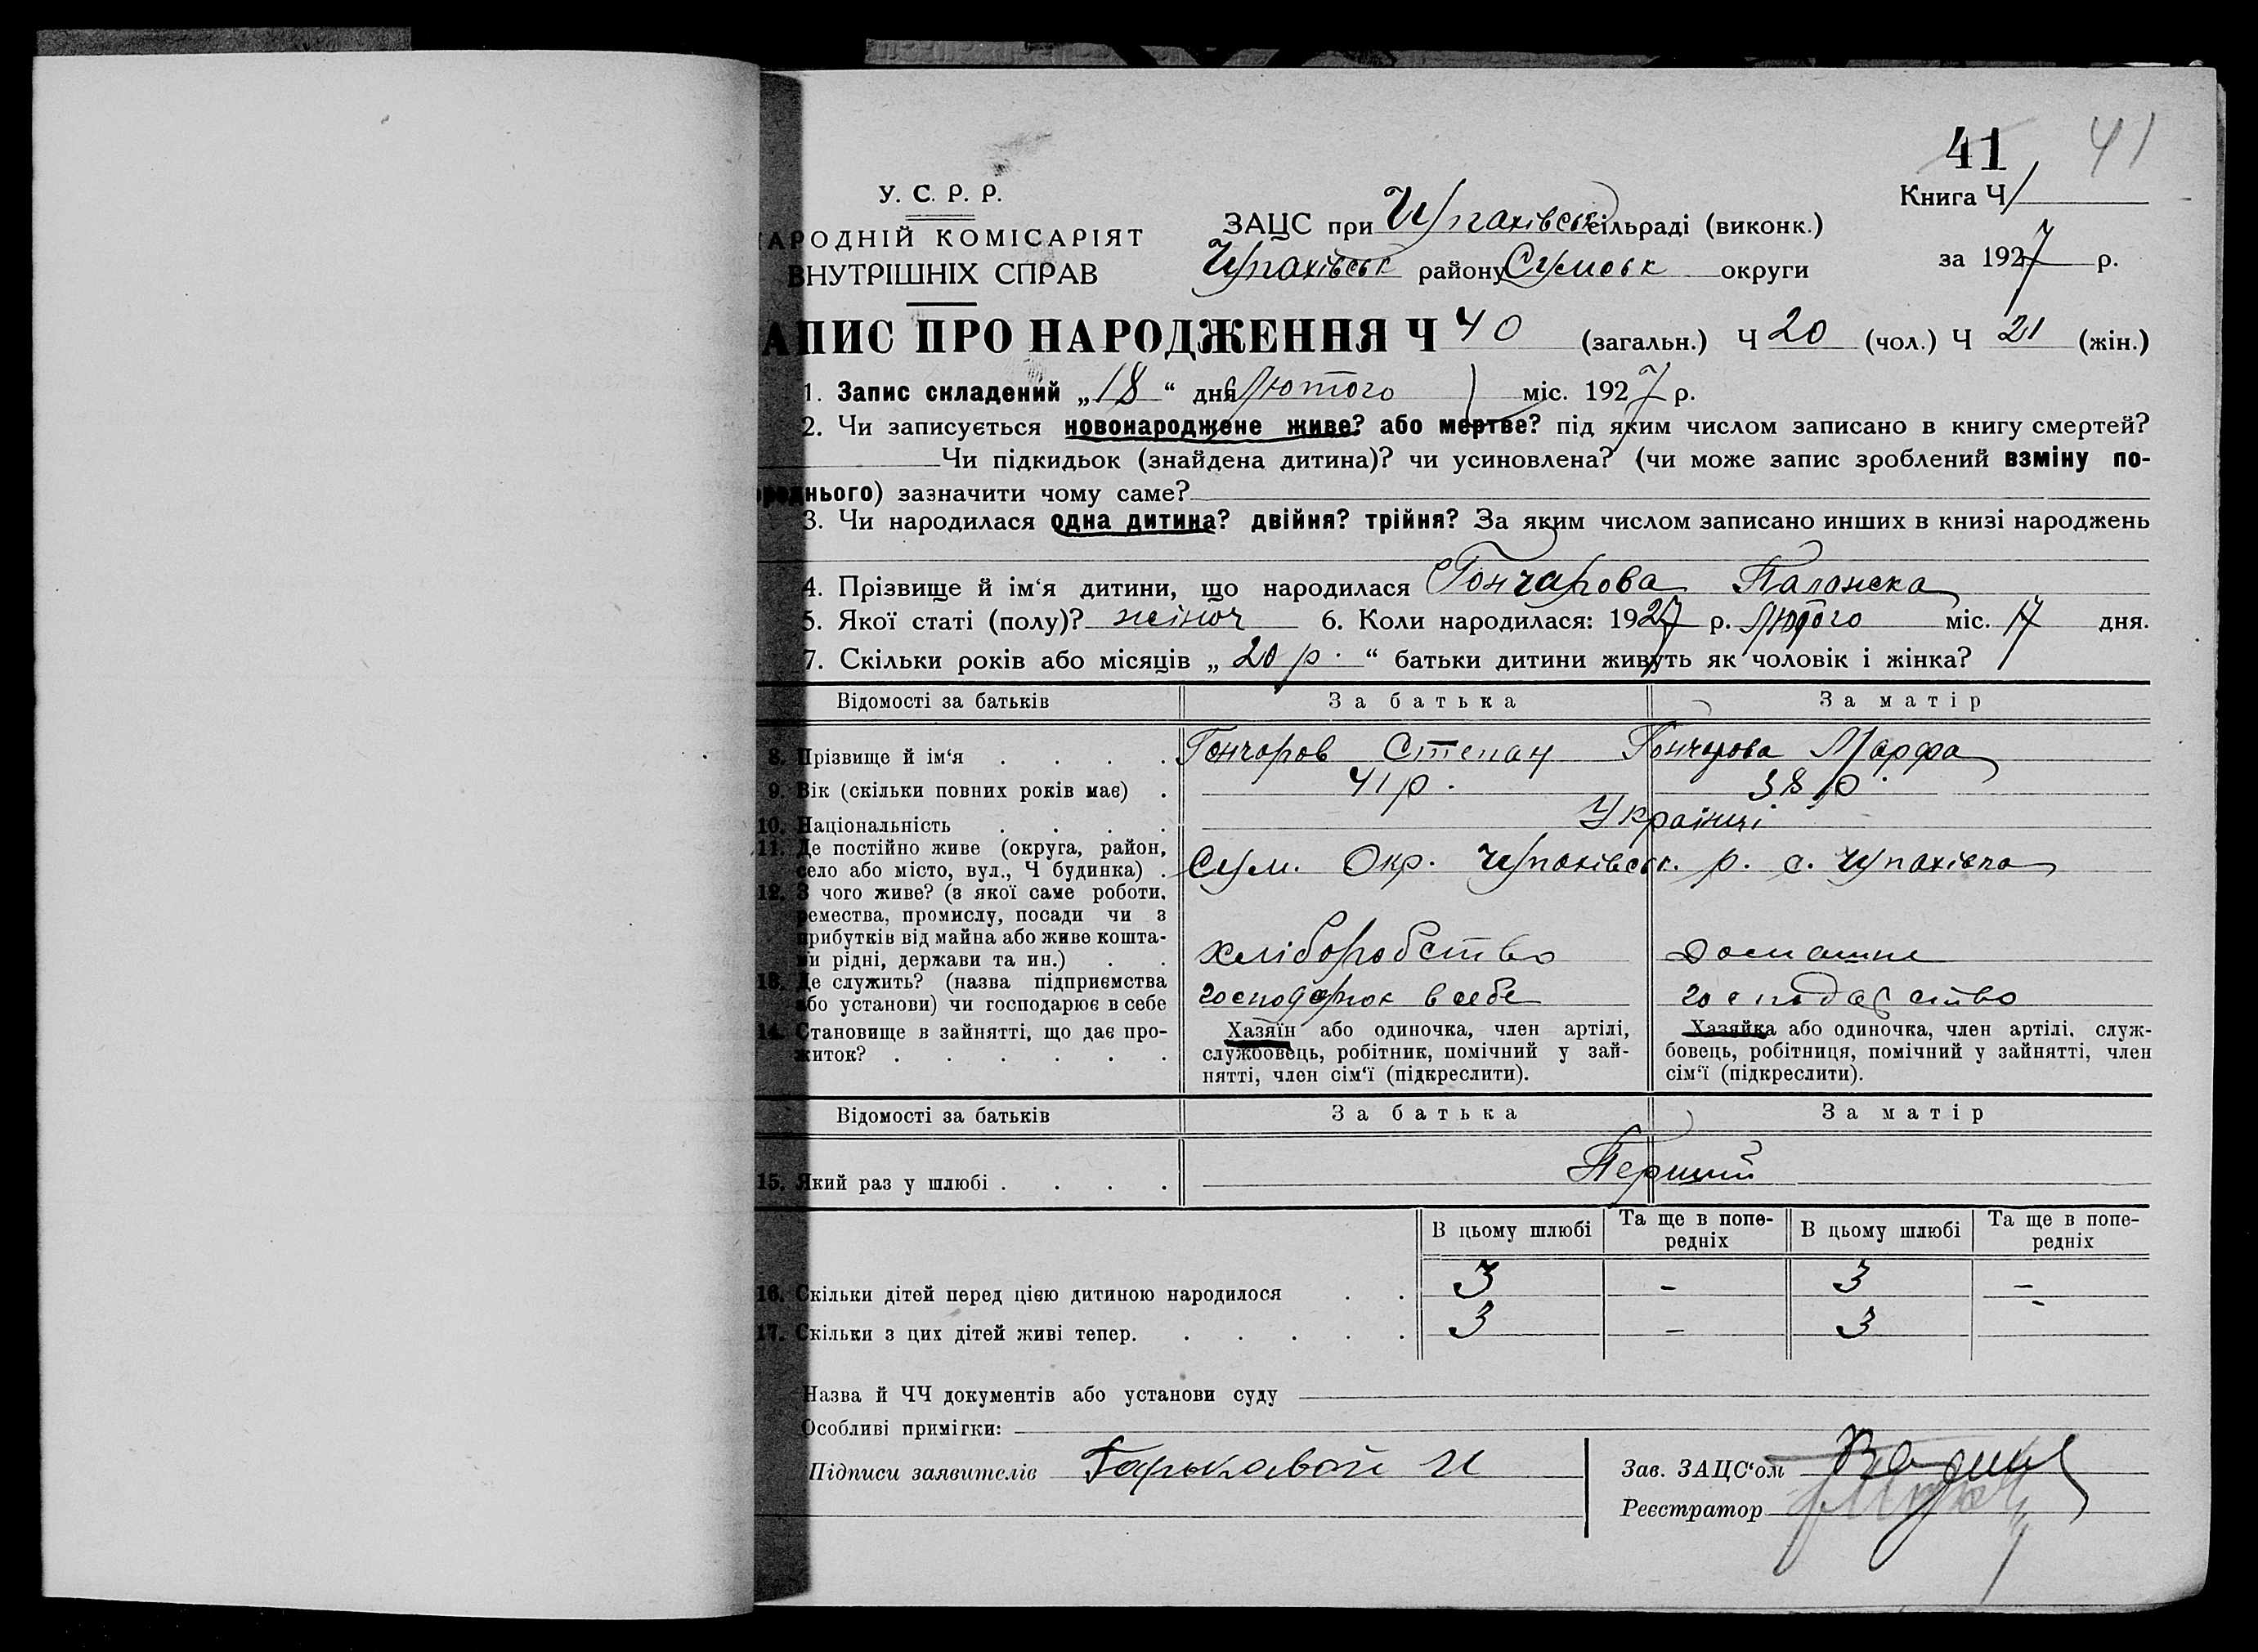 41 41
У. С. Р. Р.
Книга Ч
АРОДНІЙ КОМІСАРІЯТ
ВНУТРІШНІХ СПРАВ
ЗАЦС при Чупахівськ сільраді (виконк.)
Чупахівськ району Сумськ округи
за 1927 р.
АПИС ПРО НАРОДЖЕННЯ Ч 40 (загальн.) Ч 20 (чол.) Ч 21 (жін.)
1. Запис складений „18“ дня Лютого міс. 1927 р.
2. Чи записується новонароджене живе? або мертве? під яким числом записано в книгу смертей?
Чи підкидьок (знайдена дитина)? чи усиновлена? (чи може запис зроблений взміну по-
реднього) зазначити чому саме?
3. Чи народилася одна дитина? двійня? трійня? За яким числом записано инших в книзі народжень
4. Прізвище й ім‘я дитини, що народилася Гончарова Палажка
5. Якої статі (полу)? жіноч 6. Коли народилася: 1927 р. Лютого міс. 17 дня.
7. Скільки років або місяців „20 р.“ батьки дитини живуть як чоловік і жінка?
Відомості за батьків За батька За матір
8. Прізвище й ім‘я . . . . Гончаров Степан Гончарова Марфа
9. Вік (скільки повних років має) . 41 р. 38 р.
10. Національність . . . . Українці
11. Де постійно живе (округа, район,
село або місто, вул., Ч будинка) . Сум. Окр. Чупахівськ. р. с. Чупахівка
12. З чого живе? (з якої саме роботи,
ремества, промислу, посади чи з
прибутків від майна або живе кошта-
ми рідні, держави та ин.) . . хліборобство домашнє
13. Де служить? (назва підприємства
або установи) чи господарює в себе господарює в себе господарство
14. Становище в зайнятті, що дає про-
житок? . . . . . .
Хазяїн або одиночка, член артілі,
службовець, робітник, помічний у зай-
нятті, член сім‘ї (підкреслити).
Хазяйка або одиночка, член артілі, служ-
бовець, робітниця, помічний у зайнятті, член
сім‘ї (підкреслити).
Відомості за батьків За батька За матір
15. Який раз у шлюбі . . . . Перший
В цьому шлюбі Та ще в попе-
редніх В цьому шлюбі Та ще в попе-
редніх
16. Скільки дітей перед цією дитиною народилося . . 3 – 3 –
17. Скільки з цих дітей живі тепер. . . . . . 3 – 3 –
Назва й ЧЧ документів або установи суду
Особливі примітки:
Підписи заявителів Гарькавой И
Зав. ЗАЦС‘ом
Реєстратор